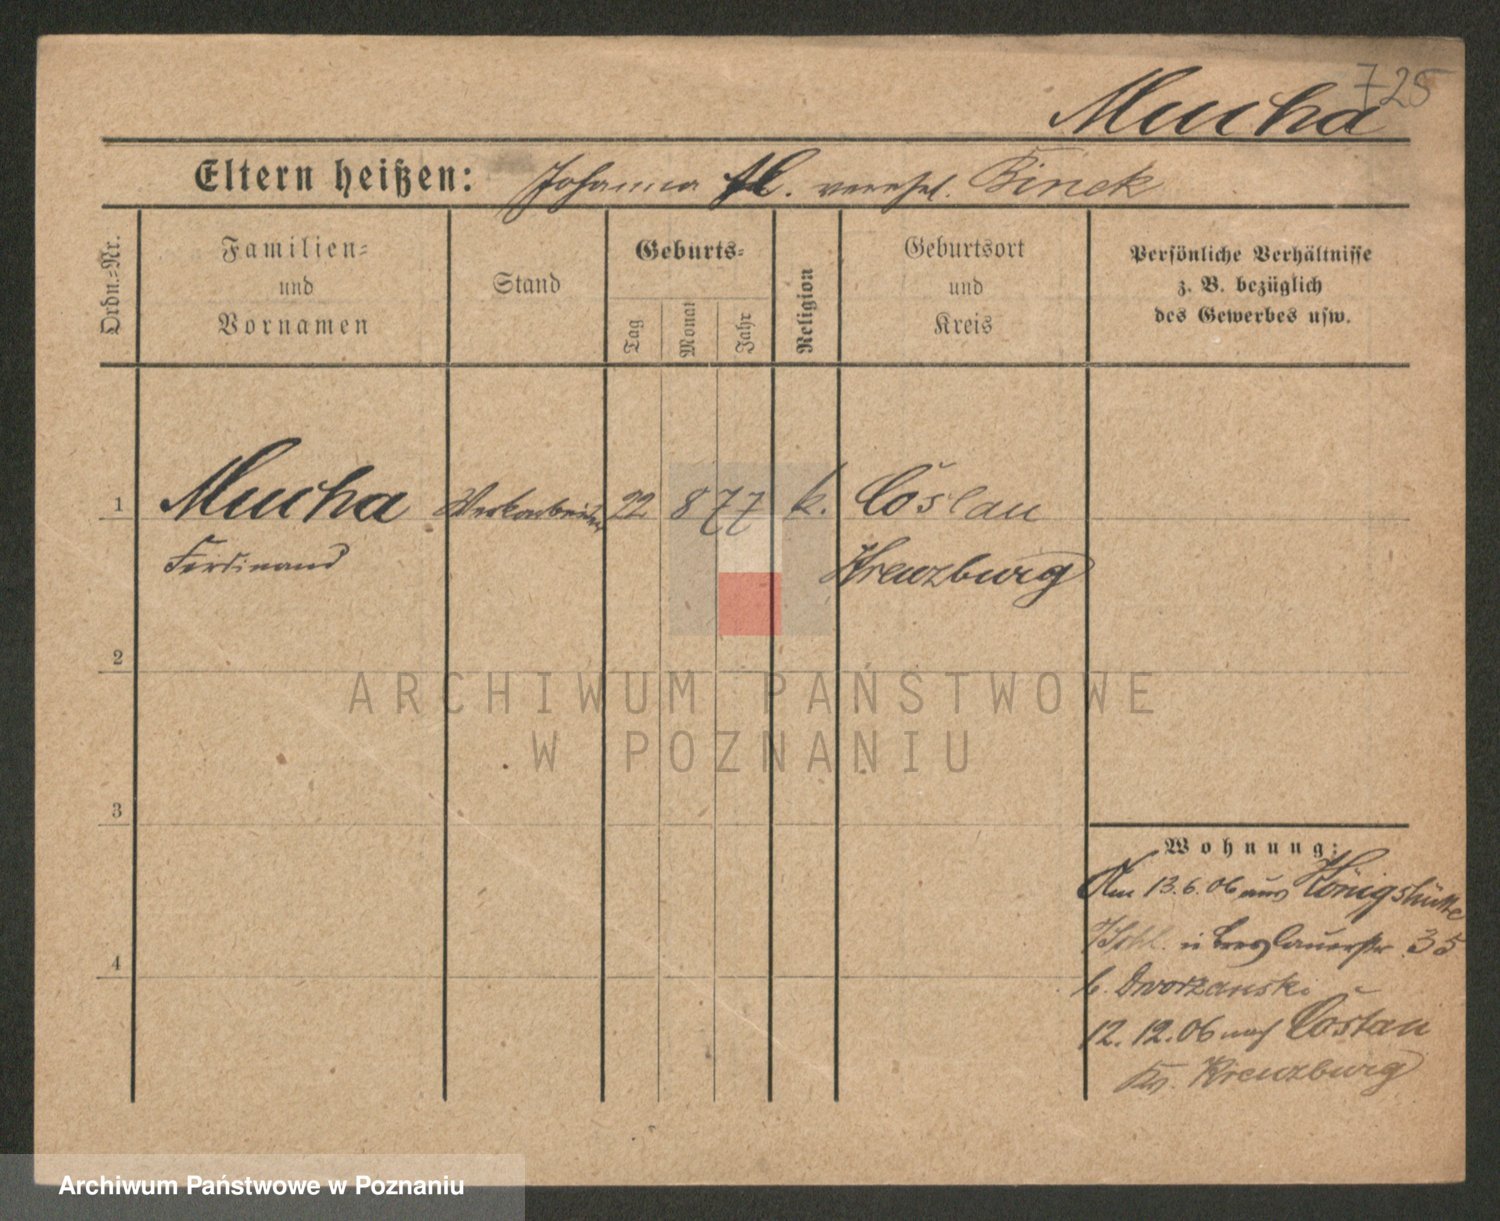 725
Mucha
Eltern heißen: Johanna M. verehel. Binek
Ordn.-Nr.
Familien-
und
Vornamen
Stand
Geburts-
Tag
Monat
Jahr
Religion
Geburtsort
und
Kreis
Persönliche Verhältnisse
z. B. bezüglich
des Gewerbes usw.
1 Mucha 22 8 77 k. Coslau
Ferdinand Kreuzburg
2
ARCHIWUM PAŃSTWOWE
W POZNANIU
3
Wohnung:
Am 13.6.06 aus Königshütte
Breslauerstr. 35
4
b. Dworzanski
12.12.06 nach Costau
Kr. Kreuzburg
Archiwum Państwowe w Poznaniu